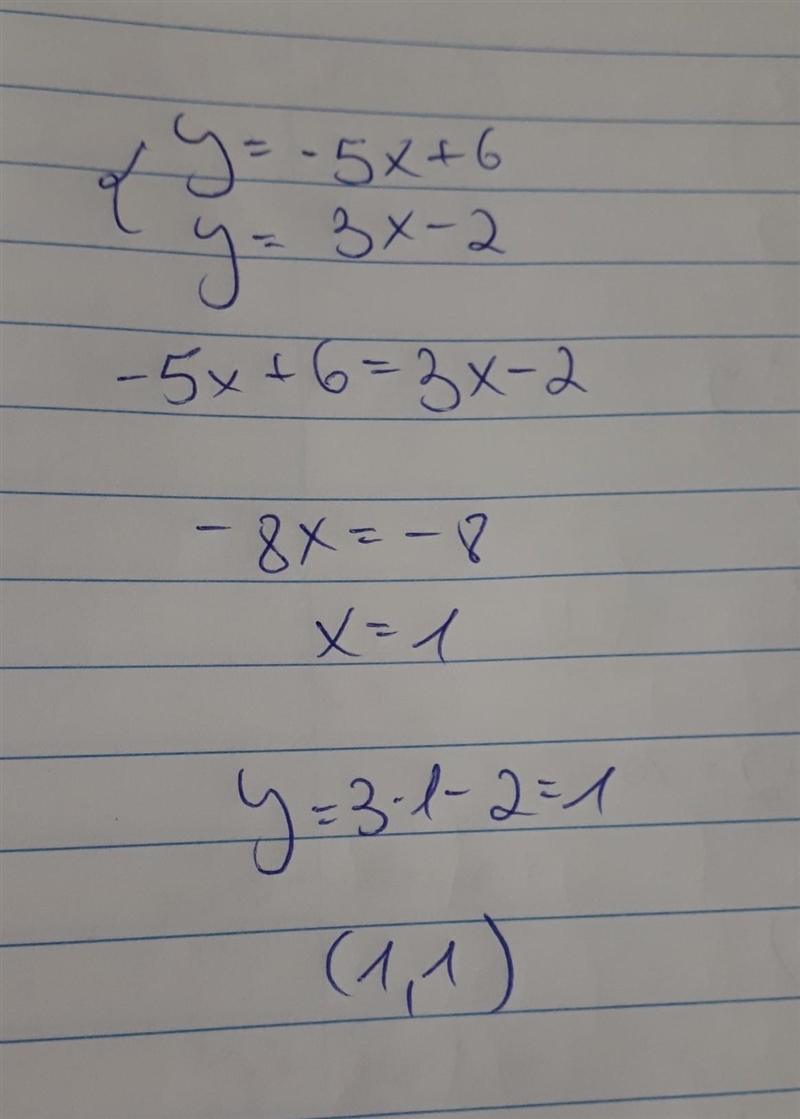 { y = -5x + 6
y = 3x - 2
-5x + 6 = 3x - 2
-8x = -8
x = 1
y = 3·1 - 2 = 1
(1,1)